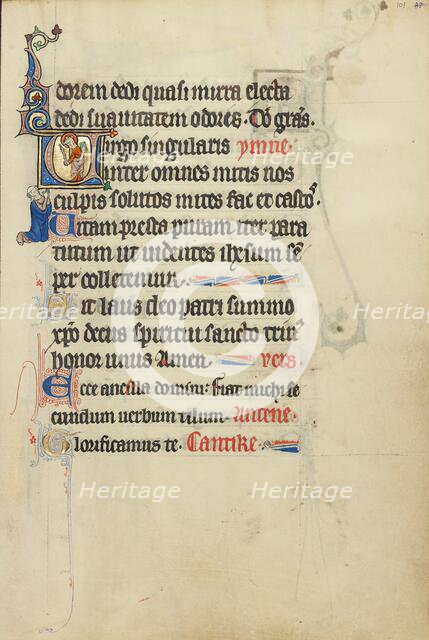 101 A8
dorem dedi quasi mirra electa
dedi suavitatem odoris. Dō grās.
Virgo singularis ymne.
inter omnes mitis nos
culpis solutos mites fac et castoˢ.
Vitam presta puram iter para
tutum ut videntes ihesum sē
per colletemur.
Sit laus deo patri summo
xp̄o decus spiritui sancto trin
honor unus Amen. vers
Ecce ancilla domini: Fiat michi se
cundum verbum tuum. Antene.
Glorificamus te. Cantike.
Heritage Heritage Heritage
Heritage Heritage